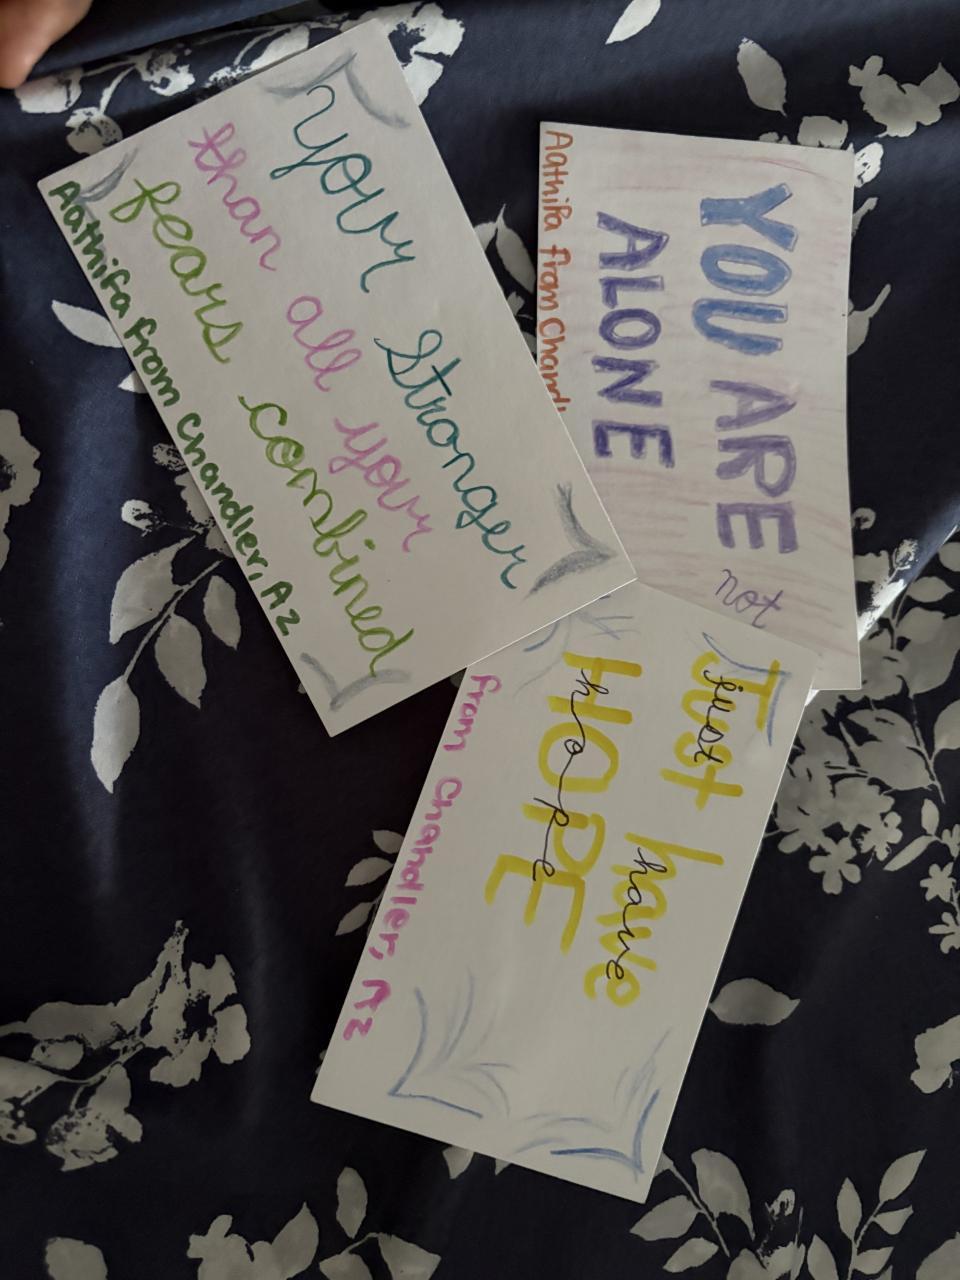 your stronger
than all your
fears combined
Aathifa from Chandler, AZ
YOU ARE not
ALONE
Aathifa from Chandl
Just have
just have
HOPE
hope
from Chandler, AZ